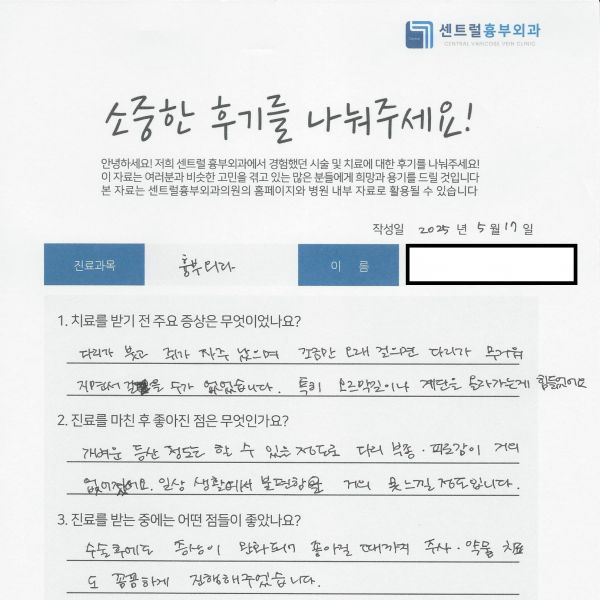 센트럴흉부외과
CENTRAL VARICOSE VEIN CLINIC
소중한 후기를 나눠주세요!
안녕하세요! 저희 센트럴 흉부외과에서 경험했던 시술 및 치료에 대한 후기를 나눠주세요!
이 자료는 여러분과 비슷한 고민을 겪고 있는 많은 분들에게 희망과 용기를 드릴 것입니다
본 자료는 센트럴흉부외과의원의 홈페이지와 병원 내부 자료로 활용될 수 있습니다
작성일 2025 년 5 월 17 일
진료과목 흉부외과 이 름
1. 치료를 받기 전 주요 증상은 무엇이었나요?
다리가 붓고 쥐가 자주 났으며 조금만 오래 걸으면 다리가 무거워
지면서 걸을 수가 없었습니다. 특히 오르막길이나 계단을 올라가는게 힘들었어요
2. 진료를 마친 후 좋아진 점은 무엇인가요?
가벼운 등산 정도는 할 수 있을 정도로 다리 부종·피로감이 거의
없어졌어요. 일상 생활에서 불편함을 거의 못느낄 정도입니다.
3. 진료를 받는 중에는 어떤 점들이 좋았나요?
수술후에도 증상이 완화되기 좋아질 때까지 주사·약물 치료
도 꼼꼼하게 진행해주었습니다.